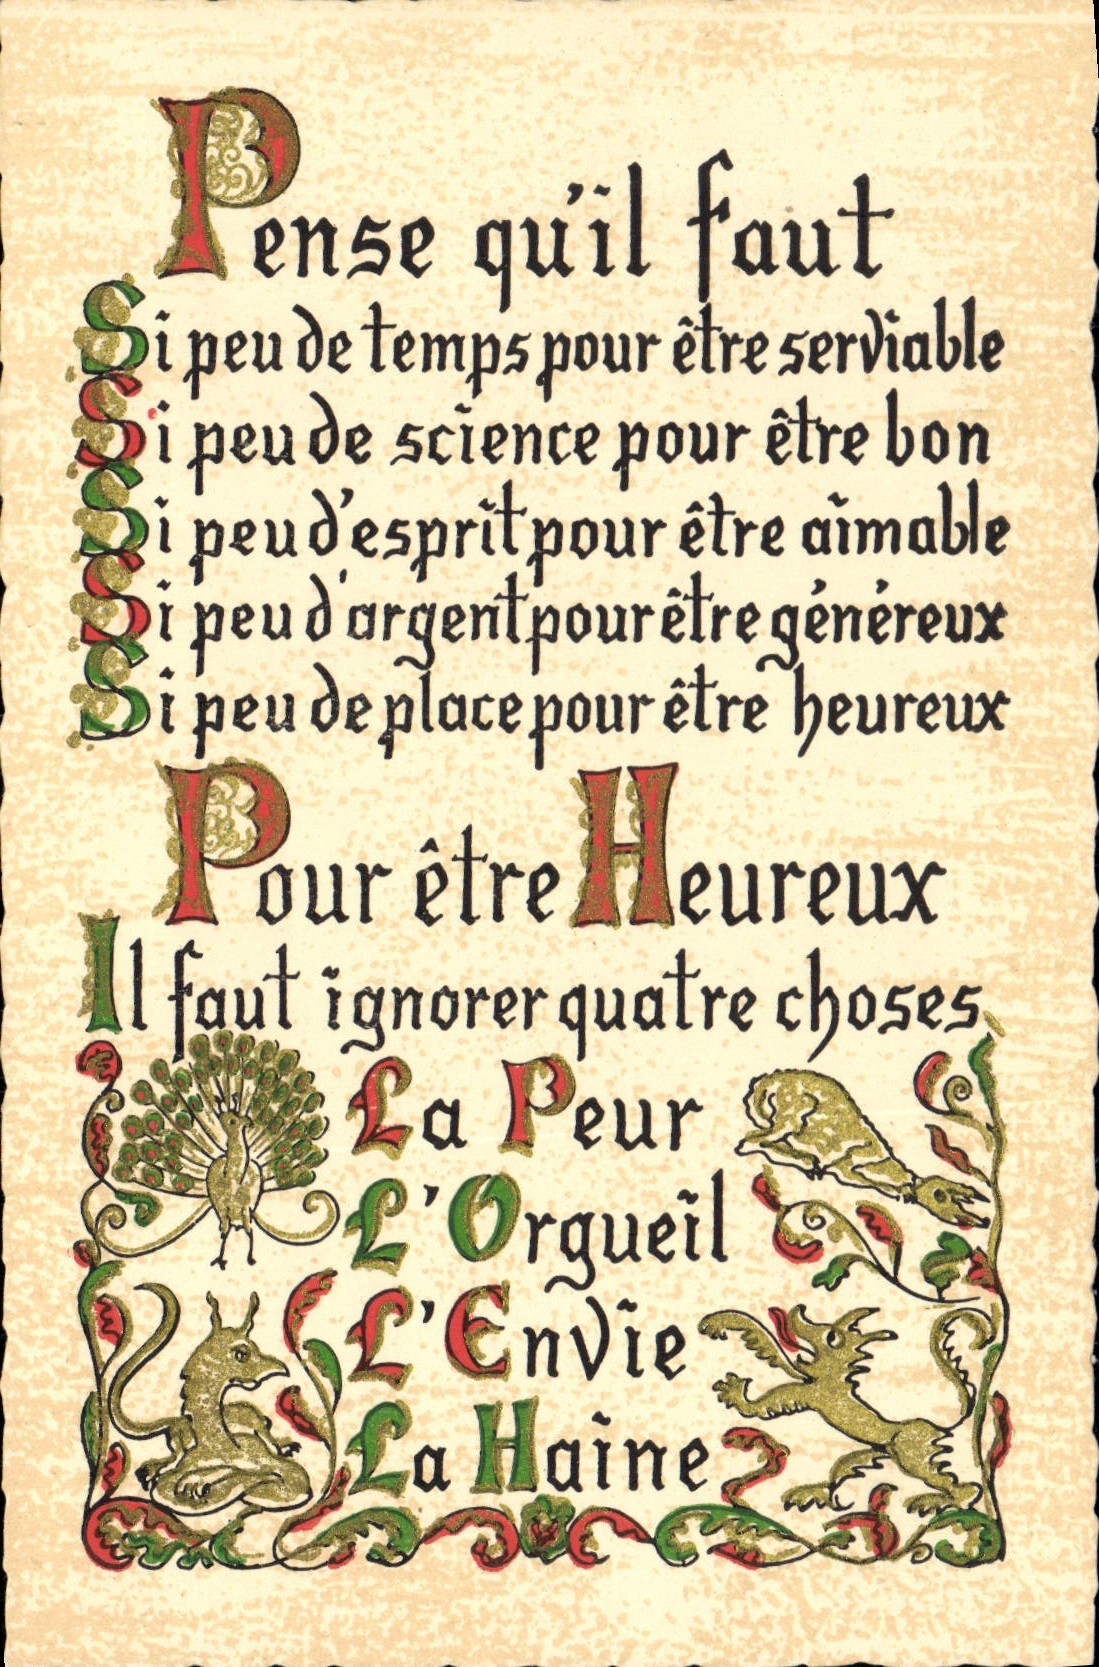 Pense qu'il faut
Si peu de temps pour être serviable
Si peu de science pour être bon
Si peu d'esprit pour être aimable
Si peu d'argent pour être généreux
Si peu de place pour être heureux
Pour être Heureux
Il faut ignorer quatre choses
La Peur
L'Orgueil
L'Envie
La Haine